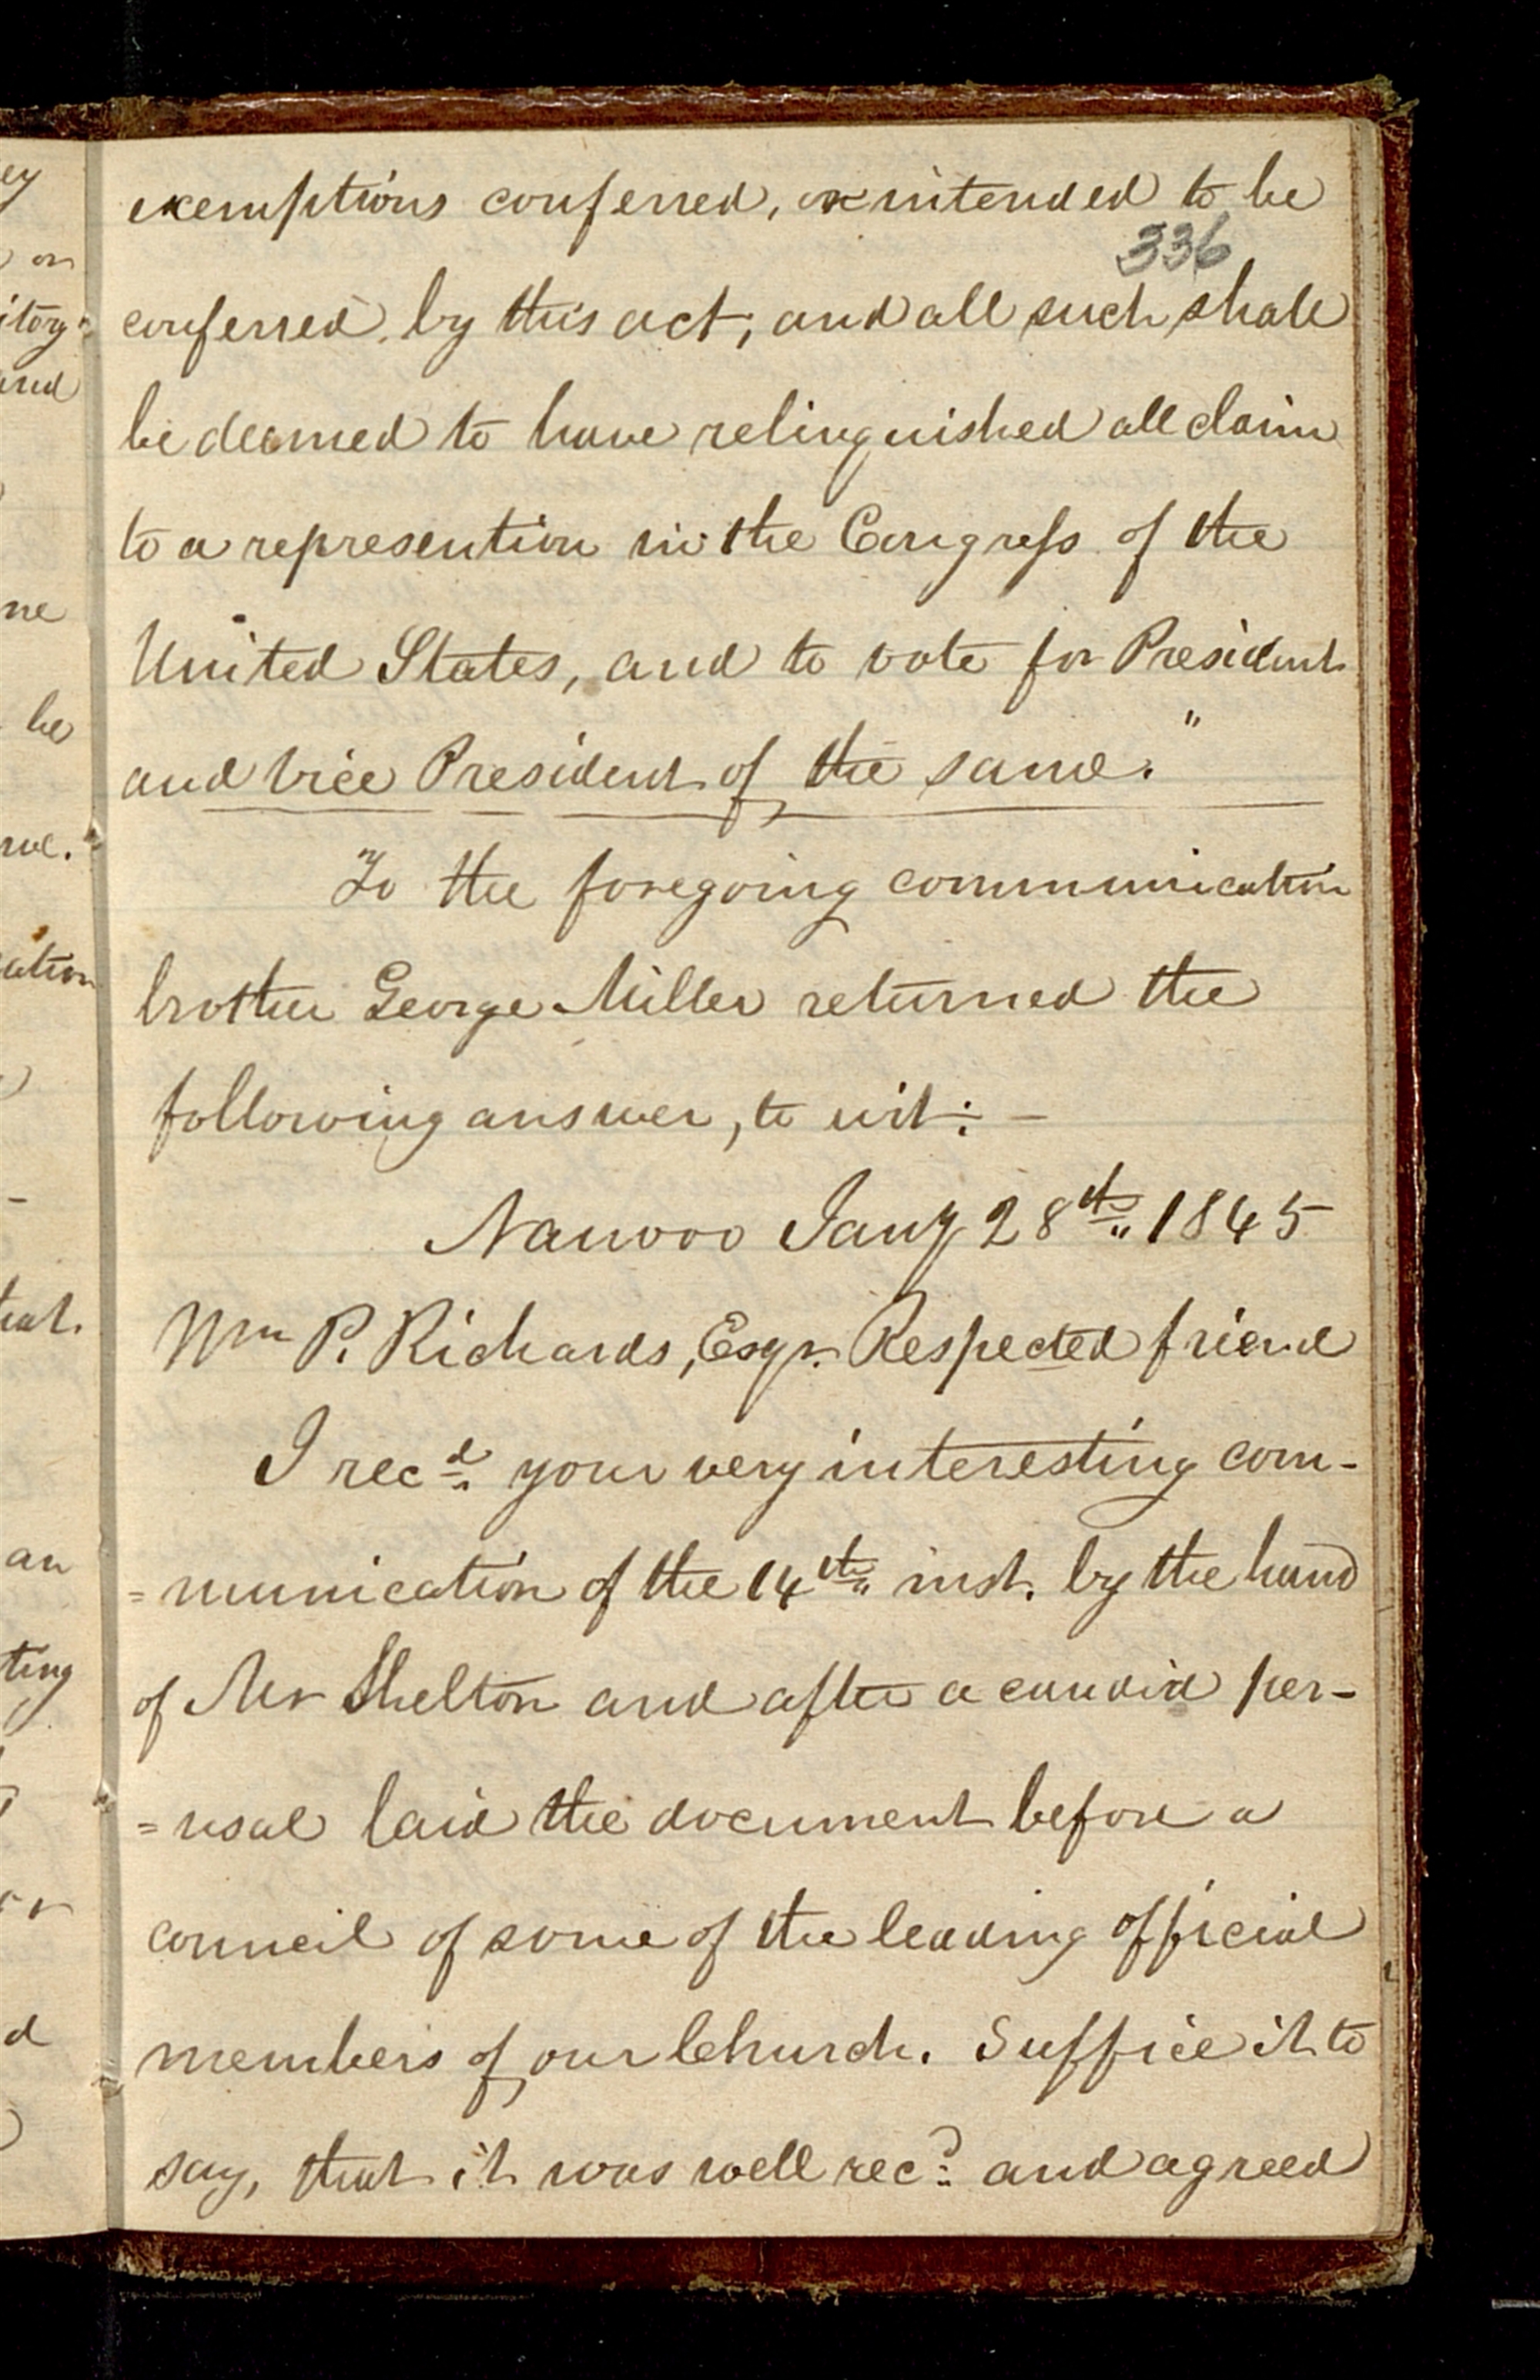 exemptions conferred, or intended to be
336
conferred, by this act; and all such shall
be deemed to have relinquished all claim
to a represention in the Congress of the
United States, and to vote for President
and vice President of the same."
To the foregoing communication
brother George Miller returned the
following answer, to wit:—
Nauvoo Jany 28th 1845
Wm P. Richards, Esqr. Respected friend
I recd. your very interesting com-
=munication of the 14th inst. by the hand
of Mr Shelton and after a candid per-
=usal laid the document before a
council of some of the leading official
members of our Church. Suffice it to
say, that it was well recd. and agreed
ey
on
itory
and
ne
be
ation
an
ting
d